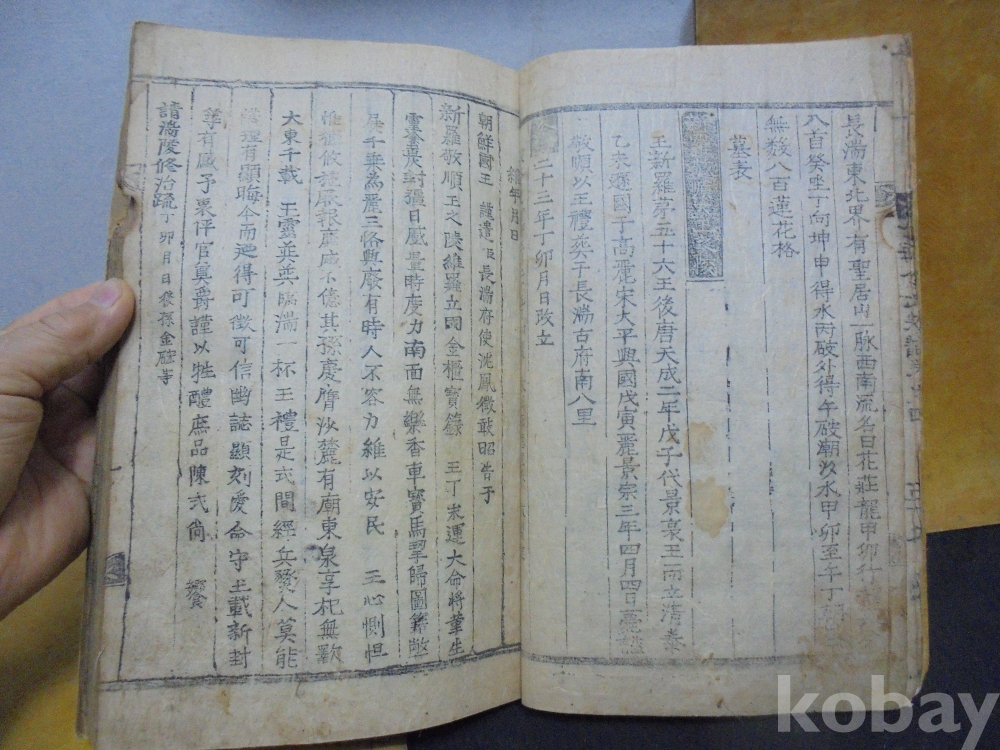 長湍東北東有聖居山一脉西南流名曰花莊龍甲卯行
八首癸坐丁向坤申得水丙破外得午破潮汐水甲卯至午丁
無發八百蓮花格
墓表
王新羅第五十六王後唐天成二年戊子代景哀王而立清泰
乙未遜國于高麗宋太平興國戊寅麗景宗三年四月四日薨諡
敬順以王禮葬于長湍古府南八里
二十三年丁卯月日改立
維年月日
朝鮮國王 謹遣臣長湍府使沈鳳徵敢昭告于
新羅敬順王之陵維羅立國金櫃寶籙 王丁末運大命將革生
靈 封疆日蹙量時度力南面無樂香車寶馬挈歸圖籍
千乘為麗恪興廢有時人不容力維以安民 王心惻怛
攸 厥報 不億其孫慶膺沙麓有廟東泉享祀無斁
大東千載 王靈 臨湍一杯王禮是式間經兵燹人莫能
理有顯晦今而 得可徵可信幽誌顯刻爰命守土載新封
有感予衷伻官奠爵謹以牲醴庶品陳式尙 饗
請湍陵修治疏丁卯月日裔孫金 等
kobay